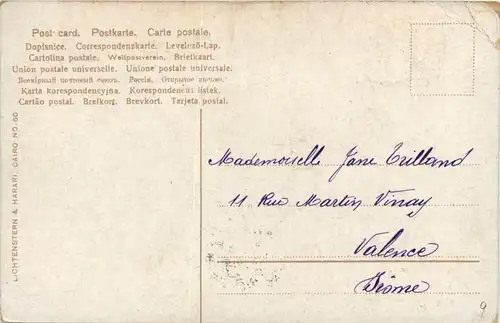 Post card. Postkarte. Carte postale.
Dopisnice. Correspondenzkarte. Levelező-Lap.
Cartolina postale. Weltpostverein. Briefkaart.
Union postale universelle. Unione postale universale.
Всемірный почтовый союзъ. Россія. Открытое письмо.
Karta korespondencyjna. Korespondenční listek.
Cartão postal. Brefkort. Brevkort. Tarjeta postal.
LICHTENSTERN & HARARI, CAIRO NO. 60
Mademoiselle Jane Trilland
11 Rue Martin Vinay
Valence
Drôme
9